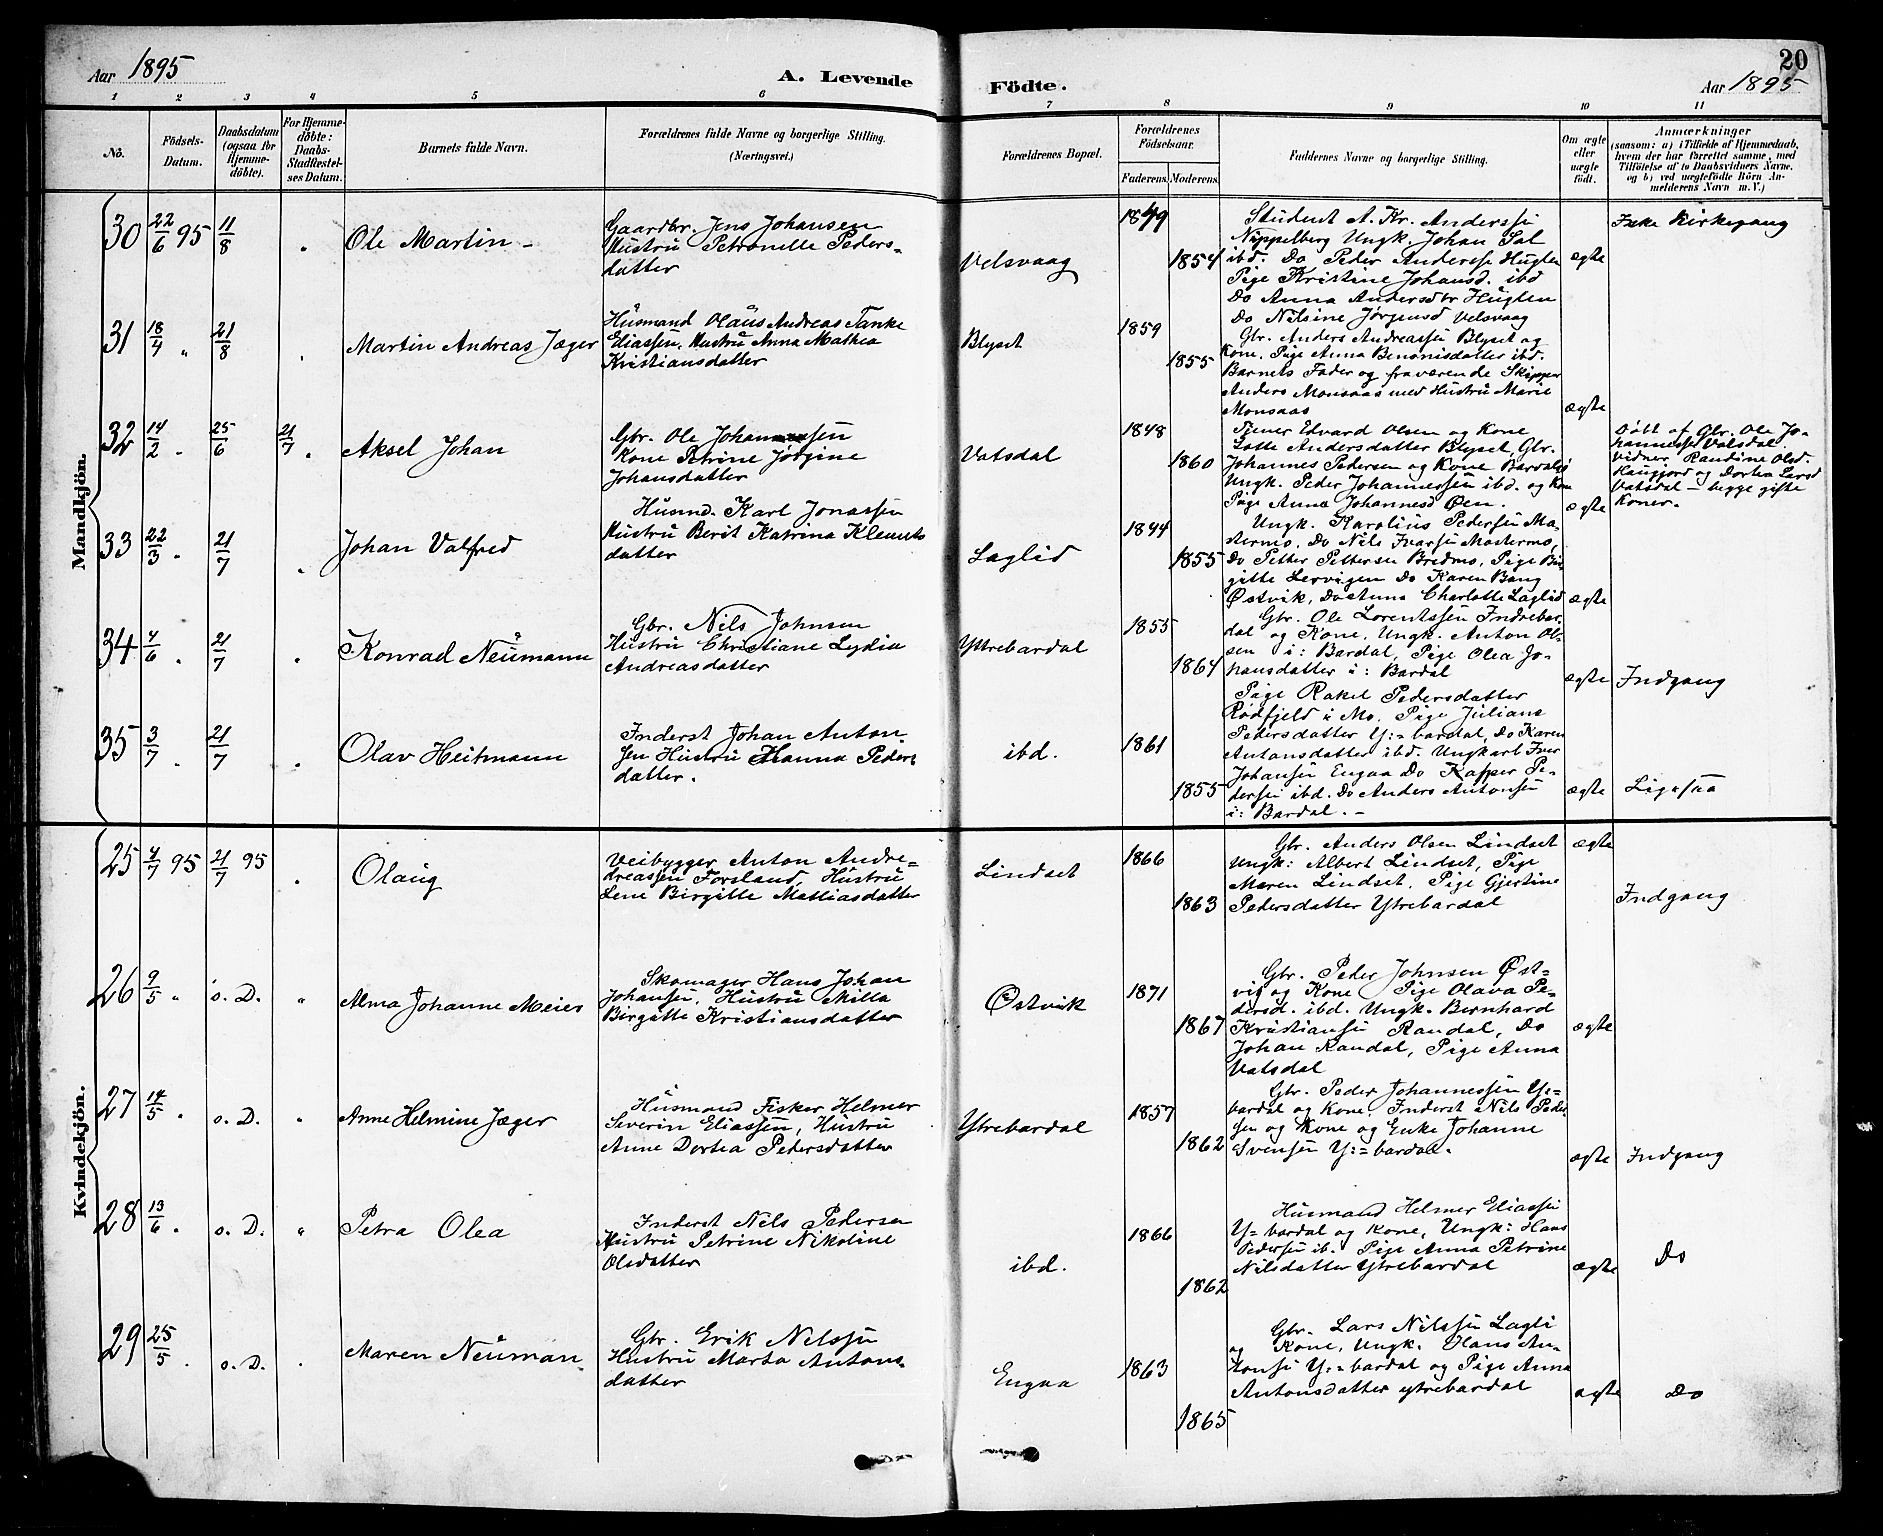 Aar 1895
A. Levende
Födte.
20
Aar 1895
1 2 3 4 5 6 7 8 9 10 11
No.
Födsels-
Datum.
Daabsdatum
(ogsaa for
Hjemme-
döbte).
For Hjemme-
döbte:
Daabs-
Stadfæstel-
ses Datum.
Barnets fulde Navn.
Forældrenes fulde Navne og borgerlige Stilling.
(Næringsvei.)
Forældrenes Bopæl.
Forældrenes
Födselsaar.
Faderens. Moderens.
Faddernes Navne og borgerlige Stilling.
Om ægte
eller
uægte
födt.
Anmærkninger
(saasom: a) i Tilfælde af Hjemmedaab,
hvem der har forrettet samme, med
Tilföielse af to Daabsvidners Navne.
og b) ved uægtefödte Börn An-
melderens Navn m. V.)
Mandkjön.
30 22/6 95 11/8 " Ole Martin -
Gaardbr. Jens Johansen
Hustru Petronelle Peders-
datter
Velsvaag
1849
1854
Student A. Kr. Anderssen
Nippelberg Ungk. Johan Sal
ibd. Do Peder Anderss Hugten
Pige Kristine Johansd. ibd
Do Anna Andersdtr Hugten
Do Nilsine Jörgensd Velsvaag
ægte
Ikke Kirkegang
31 18/4 " 21/8 " Martin Andreas Jæger
Husmand Olaus Andreas Tanke
Eliassen, Hustru Anna Mathea
Kristiansdatter
Blyset
1859
1855
Gbr. Anders Andreassen Blyset og
Kone, Pige Anna Benonisdatter ibd.
Barnets Fader og fraværende Skipper
Anders Monsaas med Hustru Marie
Monsaas
ægte
32 14/2 " 25/6 21/7 " Aksel Johan
Gbr. Ole Johannessen
Kone Petrine Jörgine
Johansdatter
Vatsdal
1848
1860
Tjener Edvard Olsen og Kone
Lotte Andersdatter Blyset, Gbr.
Johannes Pedersen og Kone Bardalsj
Ungk. Peder Johannessen ibd. og Kone
Pige Anna Johannesd Öen.
ægte
Döbt af Gbr. Ole Jo-
hanness Vatsdal.
Vidner Randine Olsd.
Haugjord og Dortea Larsd
Vatsdal - begge gifte
Koner.
33 22/3 " 21/7 " Johan Valfred
Husmd. Karl Jonassen
Hustru Berit Katrina Klemets
datter
Laglid
1844
1855
Ungk. Karolius Pedersen Ma-
stermo, Do Nils Ivarsen Mastermo,
Do Petter Pettersen Bredmo, Pige Bir-
gitte Lervigen Do Karen Bang
Östvik, Do Anna Charlotte Laglid
ægte
34 4/6 " 21/7 " Konrad Neumann
Gbr. Nils Johnsen
Hustru Christiane Lydia
Andreasdatter
Ytrebardal
1855
1864
Gbr. Ole Lorentssen Indrebar-
dal og Kone, Ungk. Anton Ol-
sen i: Bardal, Pige Olea Jo-
hansdatter i: Bardal
ægte
Indgang
35 3/7 " 21/7 " Olav Heitmann
Inderst Johan Anton-
sen Hustru Hanna Peders
datter.
ibd.
1861
1855
Pige Rakel Pedersdatter
Rödfjeld i Mo, Pige Juliane
Pedersdatter Y:=bardal, Do Karen
Antonsdatter ibd. Ungkarl Iver
Johansen Engaa Do Kasper Pe-
dersen ibd. Do Anders Antonsen
i: Bardal. -
ægte
Ligesaa
Kvindekjön.
25 4/7 95 21/7 95 " Olaug
Veibygger Anton Andre-
dreassen Forsland, Hustru
Lene Birgitte Mathiasdatter
Lindset
1866
1863
Gbr. Anders Olsen Lindset
Ungk: Albert Lindset, Pige
Maren Lindset, Pige Gjertine
Pedersdatter Ytrebardal
ægte
Indgang
26 9/5 " s. D. " Alma Johanne Meier
Skomager Hans Johan
Johansen, Hustru Milla
Birgitte Kristiansdatter
Östvik
1871
1867
Gbr. Peder Johnsen Öst-
vig og Kone Pige Olava Pe-
dersd. ibd. Ungk. Bernhard
Kristiansen Randal, Do
Johan Randal, Pige Anna
Vatsdal
ægte
27 14/5 " s. D. " Anne Helmine Jæger
Husmand Fisker Helmer
Severin Eliassen, Hustru
Anne Dortea Pedersdatter
Ytrebardal
1857
1862
Gbr. Peder Johannessen Y:=
bardal og Kone, Inderst Nils Peder-
sen og Kone og Enke Johanne
Svensen Y:=bardal.
ægte
Indgang
28 13/6 " s. D. " Petra Olea
Inderst Nils Pedersen
Hustru Petrine Nikoline
Olsdatter
ibd.
1866
1862
Husmand Helmer Eliassen
Y=bardal og Kone, Ungk: Hans
Pedersen ib. Pige Anna Petrine
Nilsdatter Ytrebardal
ægte
Do
29 25/5 " s. D. " Maren Neuman
Gbr. Erik Nilssen
Hustru Marta Antons-
datter
Engaa
1863
1865
Gbr. Lars Nilssen Lagli
og Kone, Ungk. Hans An-
tonsen Y:=bardal og Pige Anna
Antonsdatter ytrebardal
ægte
Do